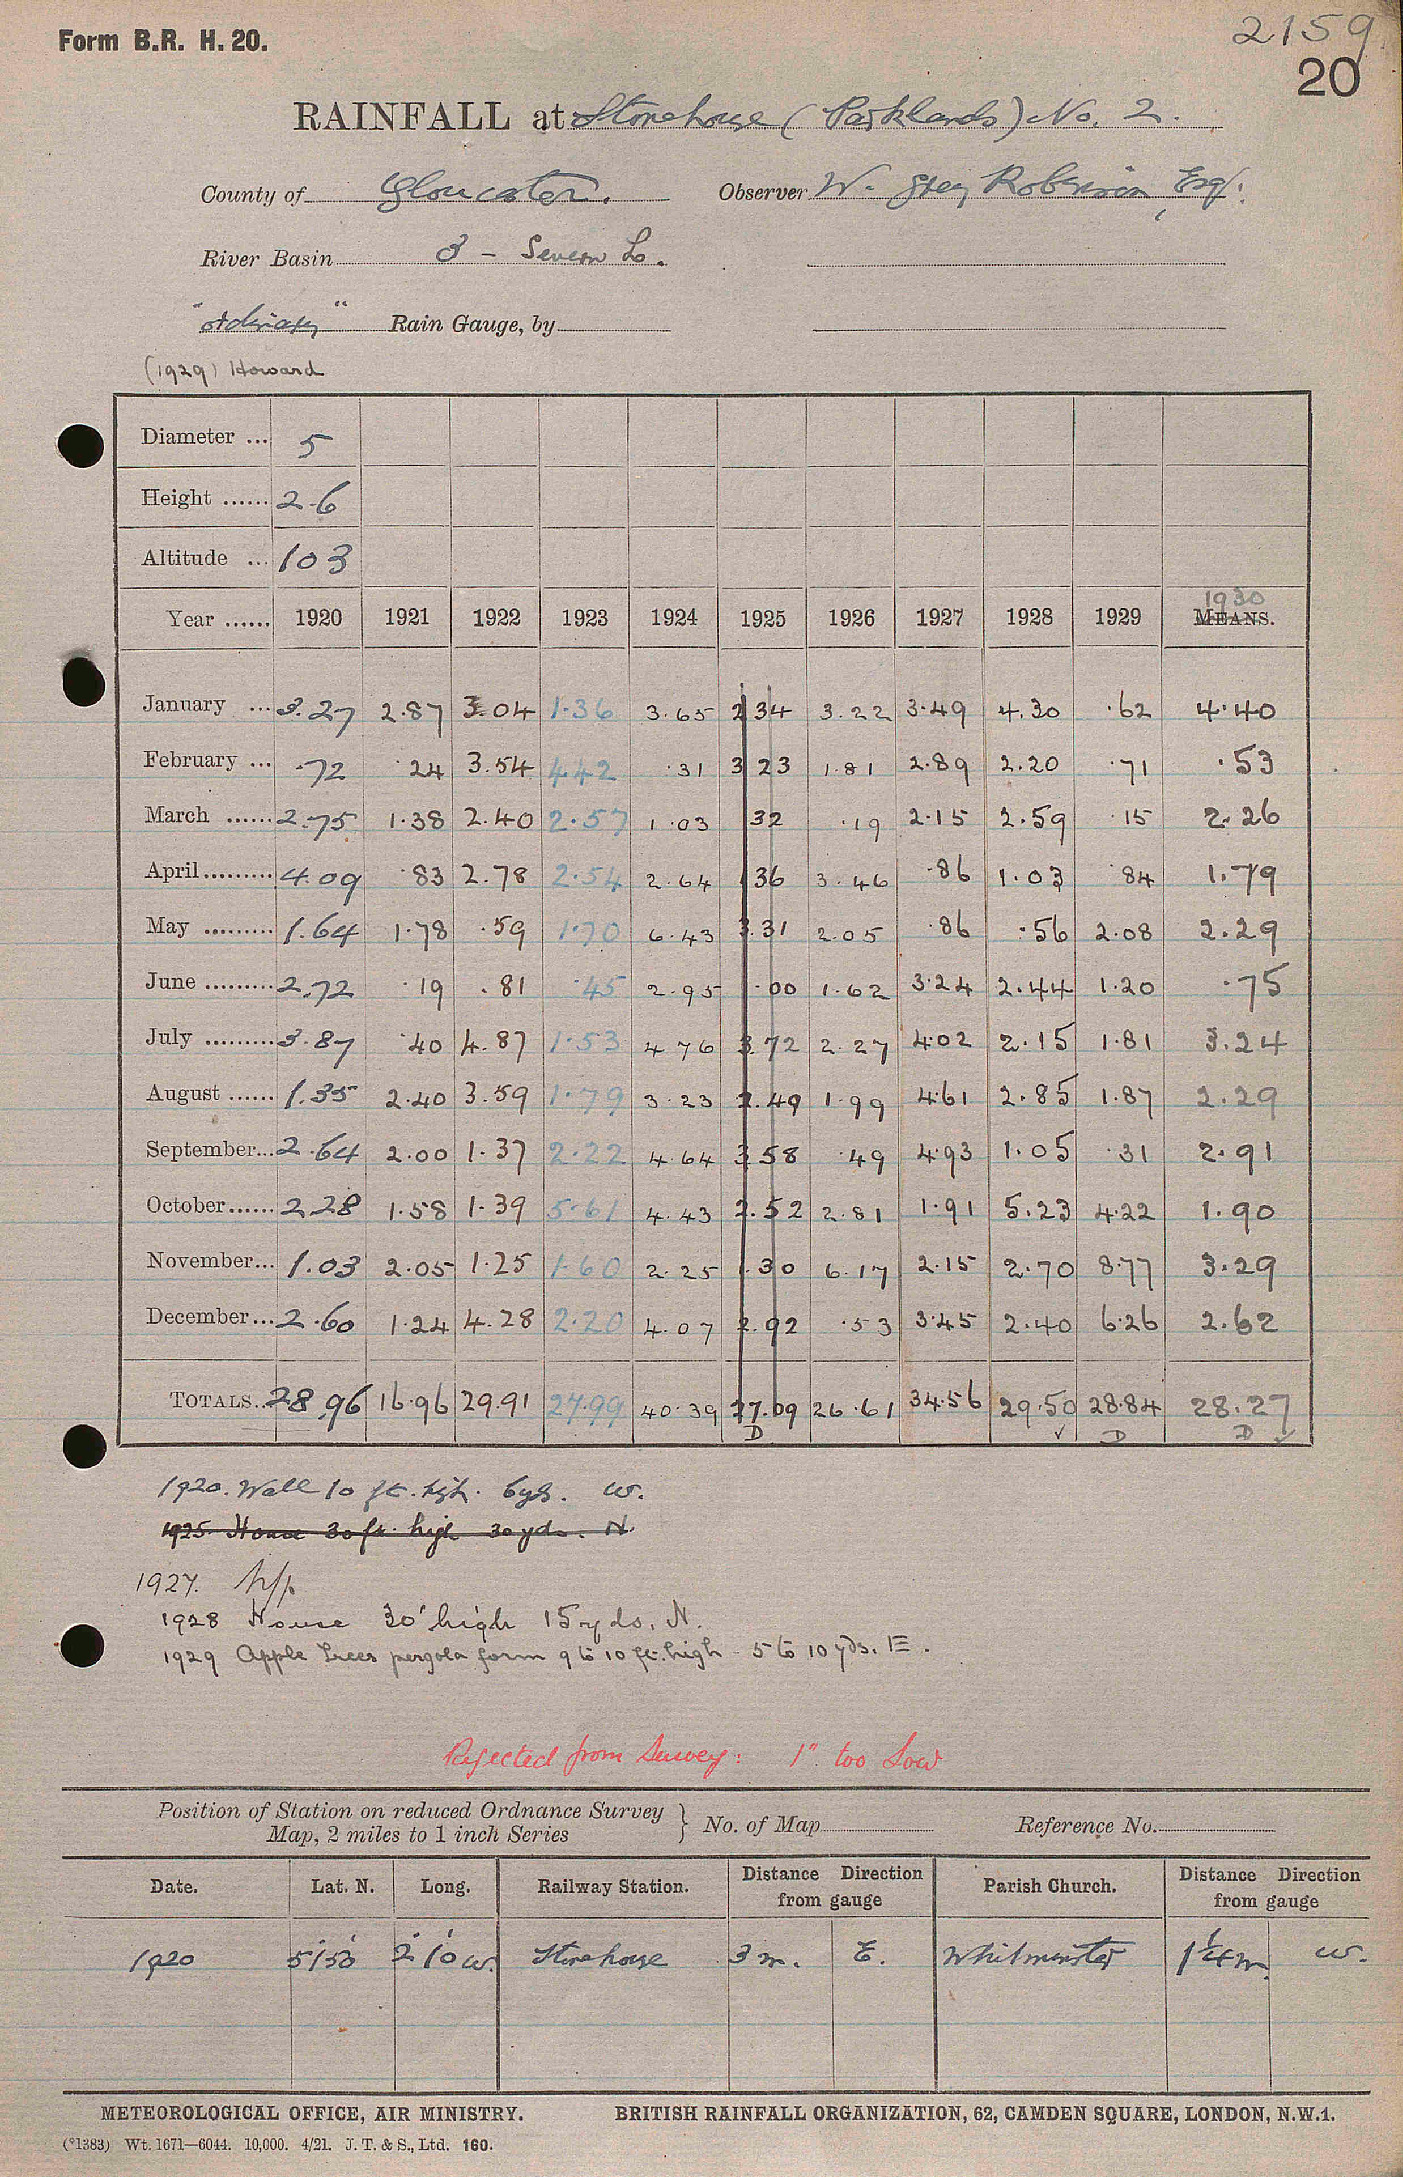 Form B.R. H. 20.
2159
20
RAINFALL at Stonehouse (Parklands) No. 2.
County of Gloucester. Observer W. Grey Robinson, Esq.
River Basin 8 - Severn L.
"ordinary" Rain Gauge, by
(1929) Howard
Diameter ... 5
Height ...... 2.6
Altitude ... 103
Year ...... 1920 1921 1922 1923 1924 1925 1926 1927 1928 1929 1930 MEANS.
January ... 3.27 2.87 3.04 1.36 3.65 2 34 3.22 3.49 4.30 .62 4.40
February ... .72 .24 3.54 4.42 .31 3 23 1.81 2.89 2.20 .71 .53
March ...... 2.75 1.38 2.40 2.57 1.03 32 .19 2.15 2.59 .15 2.26
April ......... 4.09 .83 2.78 2.54 2.64 1 36 3.46 .86 1.03 84 1.79
May ......... 1.64 1.78 .59 1.70 6.43 3.31 2.05 .86 .56 2.08 2.29
June ......... 2.72 .19 .81 .45 2.95 .00 1.62 3.24 2.44 1.20 .75
July ......... 3.87 .40 4.87 1.53 4 76 3.72 2.27 4.02 2.15 1.81 3.24
August ...... 1.35 2.40 3.59 1.79 3.23 2.49 1.99 4.61 2.85 1.87 2.29
September... 2.64 2.00 1.37 2.22 4.64 3 58 .49 4.93 1.05 .31 2.91
October...... 2.28 1.58 1.39 5.61 4.43 2.52 2.81 1.91 5.23 4.22 1.90
November... 1.03 2.05 1.25 1.60 2.25 1.30 6.17 2.15 2.70 8.77 3.29
December... 2.60 1.24 4.28 2.20 4.07 2.92 .53 3.45 2.40 6.26 2.62
TOTALS.. 28.96 16.96 29.91 27.99 40.39 27.09 26.61 34.56 29.50 28.84 28.27
D ✓ D D ✓
1920. Wall 10 ft. high. 6yds. W.
1925 House 30 ft. high 30 yds. N.
1927.
1928 House 30' high 15 yds. N.
1929 Apple Trees pergola form 9 to 10 ft. high 5 to 10 yds. E.
Rejected from Survey: 1" too Low
Position of Station on reduced Ordnance Survey Map, 2 miles to 1 inch Series } No. of Map Reference No.
Date. Lat. N. Long. Railway Station. Distance Direction from gauge Parish Church. Distance Direction from gauge
1920 51°50' 2°10' W. Stonehouse 3 m. E. Whitminster 1¼ m. W.
METEOROLOGICAL OFFICE, AIR MINISTRY. BRITISH RAINFALL ORGANIZATION, 62, CAMDEN SQUARE, LONDON, N.W.1.
(*1383) Wt. 1671—6044. 10,000. 4/21. J. T. & S., Ltd. 160.